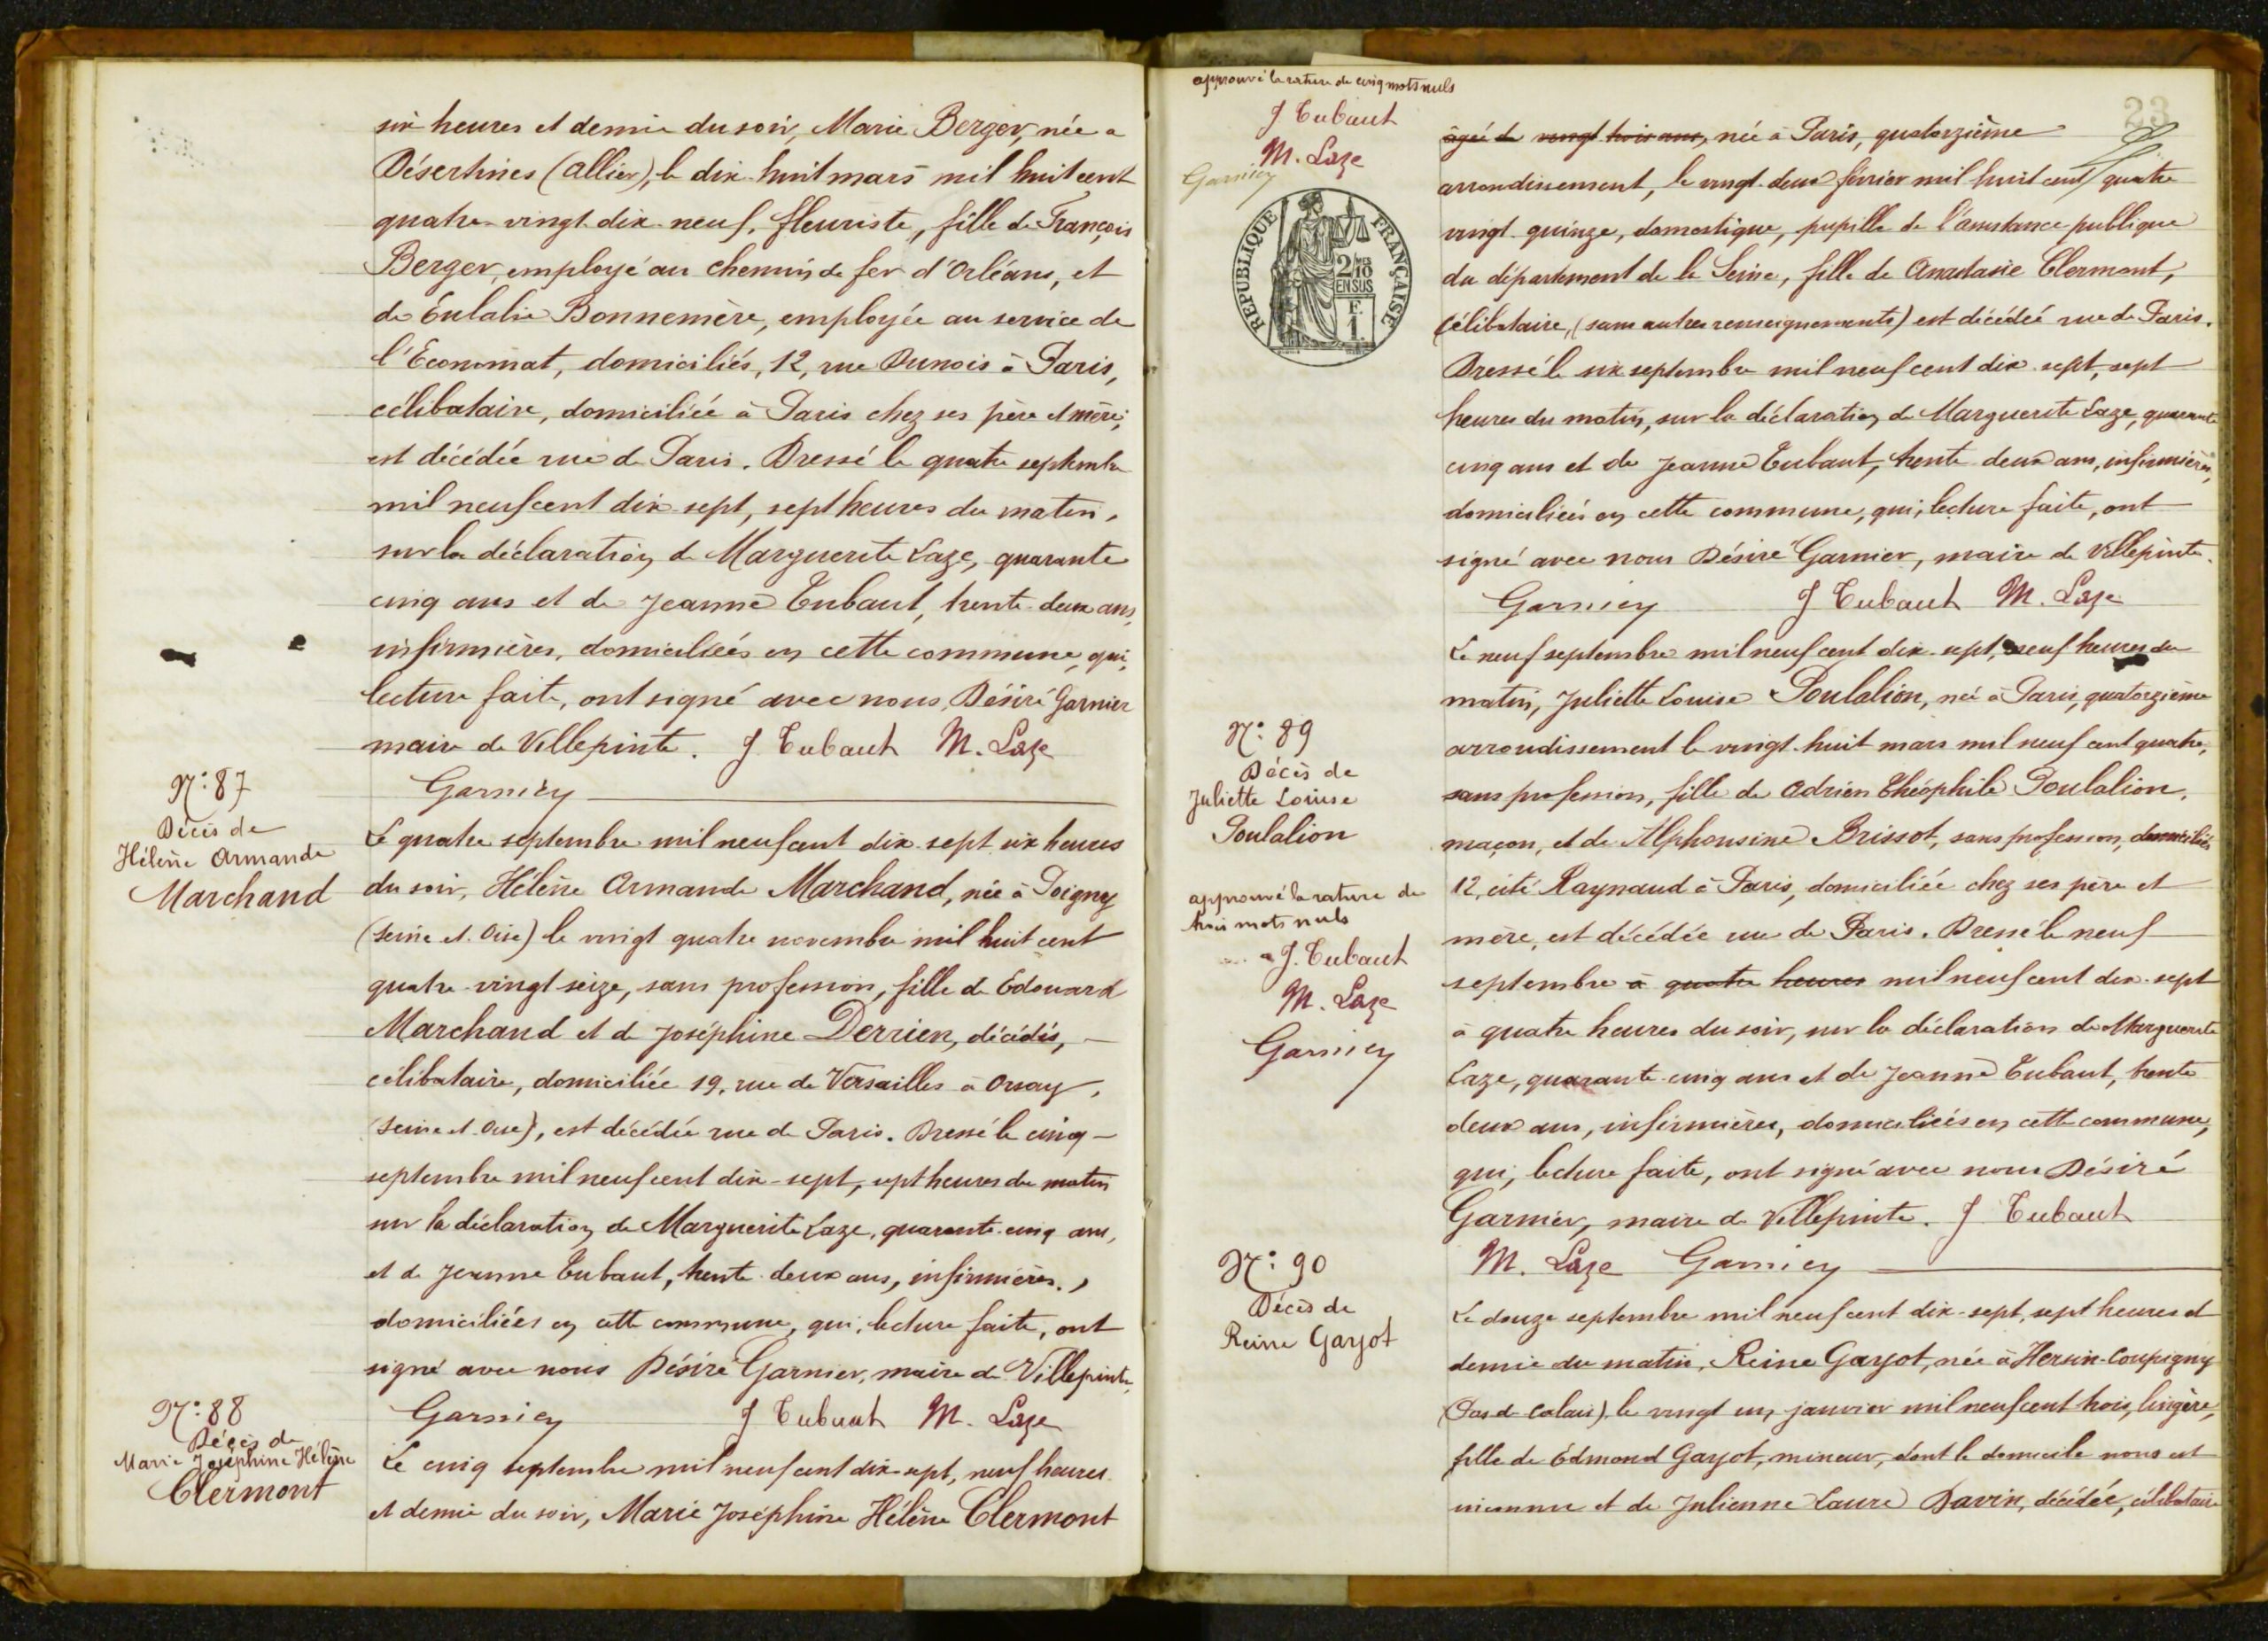 six heures et demie du soir, Marie Berger, née a
Désertines (Allier), le dix-huit mars mil huit cent
quatre-vingt-dix-neuf, fleuriste, fille de François
Berger, employé au chemin de fer d'Orléans, et
de Eulalie Bonnemère, employée au service de
l'Economat, domiciliés, 12, rue Dunois à Paris,
célibataire, domiciliée à Paris chez ses père et mère,
est décédée rue de Paris. Dressé le quatre septembre
mil neuf cent dix-sept, sept heures du matin,
sur la déclaration de Marguerite Laze, quarante
cinq ans et de Jeanne Tubaut, trente-deux ans,
infirmières, domiciliées en cette commune, qui,
lecture faite, ont signé avec nous, Désiré Garnier
maire de Villepinte. J Tubaut M. Laze
Garnier
N°: 87
Décès de
Hélène Armande
Marchand
Le quatre septembre mil neuf cent dix-sept six heures
du soir, Hélène Armande Marchand, née à Poigny
(Seine et Oise) le vingt quatre novembre mil huit cent
quatre-vingt seize, sans profession, fille de Edouard
Marchand et de Joséphine Derrien, décédés,
célibataire, domiciliée 19, rue de Versailles à Orsay,
(Seine et Oise), est décédée rue de Paris. Dressé le cinq
septembre mil neuf cent dix-sept, sept heures du matin
sur la déclaration de Marguerite Laze, quarante-cinq ans,
et de Jeanne Tubaut, trente-deux ans, infirmières,
domiciliées en cette commune, qui, lecture faite, ont
signé avec nous Désiré Garnier, maire de Villepinte,
Garnier J Tubaut M. Laze
N°: 88
Décès de
Marie Joséphine Hélène
Clermont
Le cinq septembre mil neuf cent dix-sept, neuf heures
et demie du soir, Marie Joséphine Hélène Clermont
approuvé la rature de cinq mots nuls
J Tubaut
M. Laze
Garnier
REPUBLIQUE FRANÇAISE
2/10 EN SUS
F. 1.
23
âgée de vingt trois ans, née à Paris, quatorzième
arrondissement, le vingt-deux février mil huit cent quatre
vingt-quinze, domestique, pupille de l'assistance publique
du département de la Seine, fille de Anastasie Clermont,
célibataire, (sans autres renseignements) est décédée rue de Paris.
Dressé le six septembre mil neuf cent dix-sept, sept
heures du matin, sur la déclaration de Marguerite Laze, quarante
cinq ans et de Jeanne Tubaut, trente-deux ans, infirmières,
domiciliées en cette commune, qui, lecture faite, ont
signé avec nous Désiré Garnier, maire de Villepinte.
Garnier J Tubaut M. Laze
N°: 89
Décès de
Juliette Louise
Poulalion
Le neuf septembre mil neuf cent dix-sept, neuf heures du
matin, Juliette Louise Poulalion, née à Paris, quatorzième
arrondissement le vingt-huit mars mil neuf cent quatre,
sans profession, fille de Adrien Théophile Poulalion,
maçon, et de Alphonsine Brissot, sans profession, domiciliés
12, cité Raynaud à Paris, domiciliée chez ses père et
mère, est décédée rue de Paris. Dressé le neuf
septembre à quatre heures mil neuf cent dix-sept
à quatre heures du soir, sur la déclaration de Marguerite
Laze, quarante-cinq ans et de Jeanne Tubaut, trente
deux ans, infirmières, domiciliées en cette commune,
qui, lecture faite, ont signé avec nous Désiré
Garnier, maire de Villepinte. J Tubaut
M. Laze Garnier
approuvé la rature de
trois mots nuls
J. Tubaut
M. Laze
Garnier
N°: 90
Décès de
Reine Gayot
Le douze septembre mil neuf cent dix-sept, sept heures et
demie du matin, Reine Gayot, née à Hersin-Coupigny
(Pas de Calais), le vingt un janvier mil neuf cent trois, lingère,
fille de Edmond Gayot, mineur, dont le domicile nous est
inconnu et de Julienne Laure Davin, décédée, célibataire